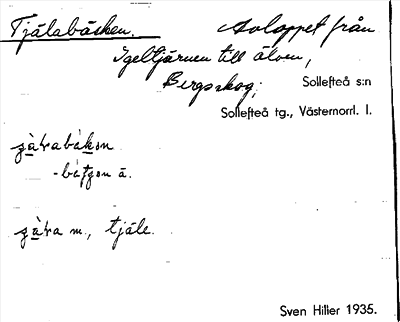 Tjälabäcken. Avloppet från
Igeltjärnen till älven,
Bergskog, Sollefteå s:n
Sollefteå tg., Västernorrl. l.
m., tjäle.
Sven Hiller 1935.